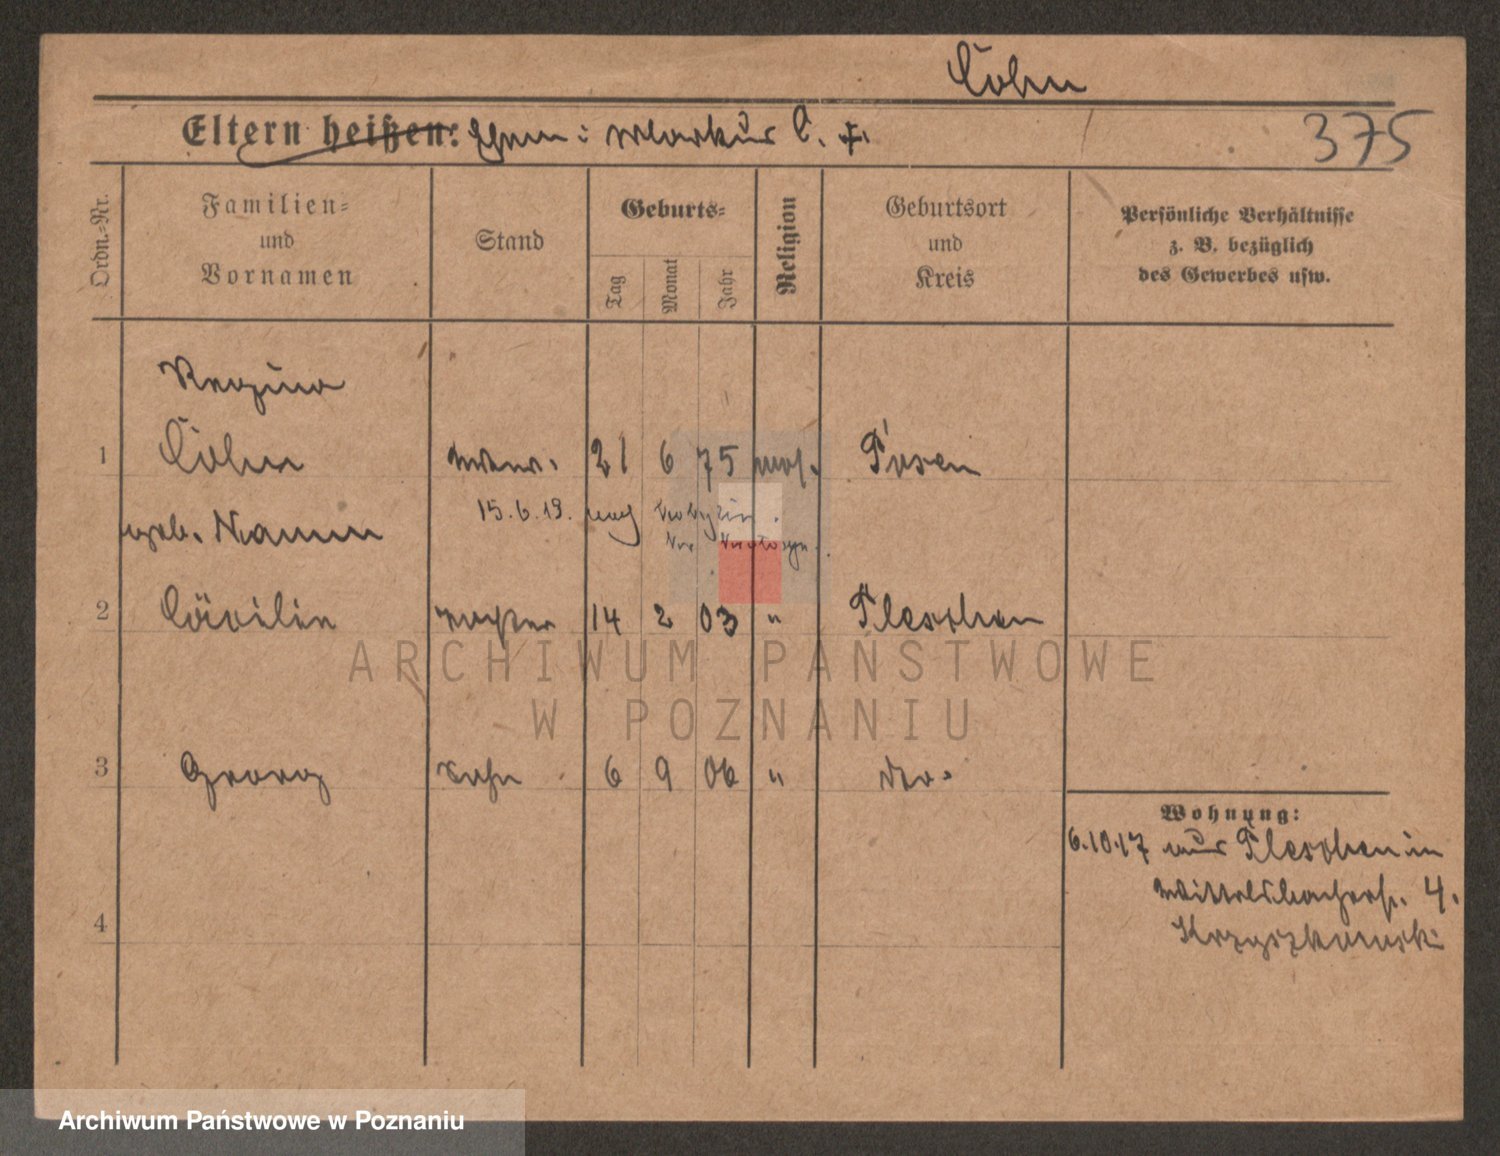 Cohn
Eltern heißen: Ehem: Markus C. †.
375
Ordn.-Nr.
Familien-
und
Vornamen
Stand
Geburts-
Tag
Monat
Jahr
Religion
Geburtsort
und
Kreis
Persönliche Verhältnisse
z. B. bezüglich
des Gewerbes usw.
Regina
1 Cohn Witwe. 21 6 75 mos. Posen
15.6.19. nach
geb. Namm
2 Cäcilie Tochter 14 2 03 " Pleschen
ARCHIWUM PAŃSTWOWE
W POZNANIU
3 Georg Sohn 6 9 06 " do.
Wohnung:
6.10.17 aus Pleschen in
Wittelsbacherstr. 4.
4 Krzyszkowski
Archiwum Państwowe w Poznaniu